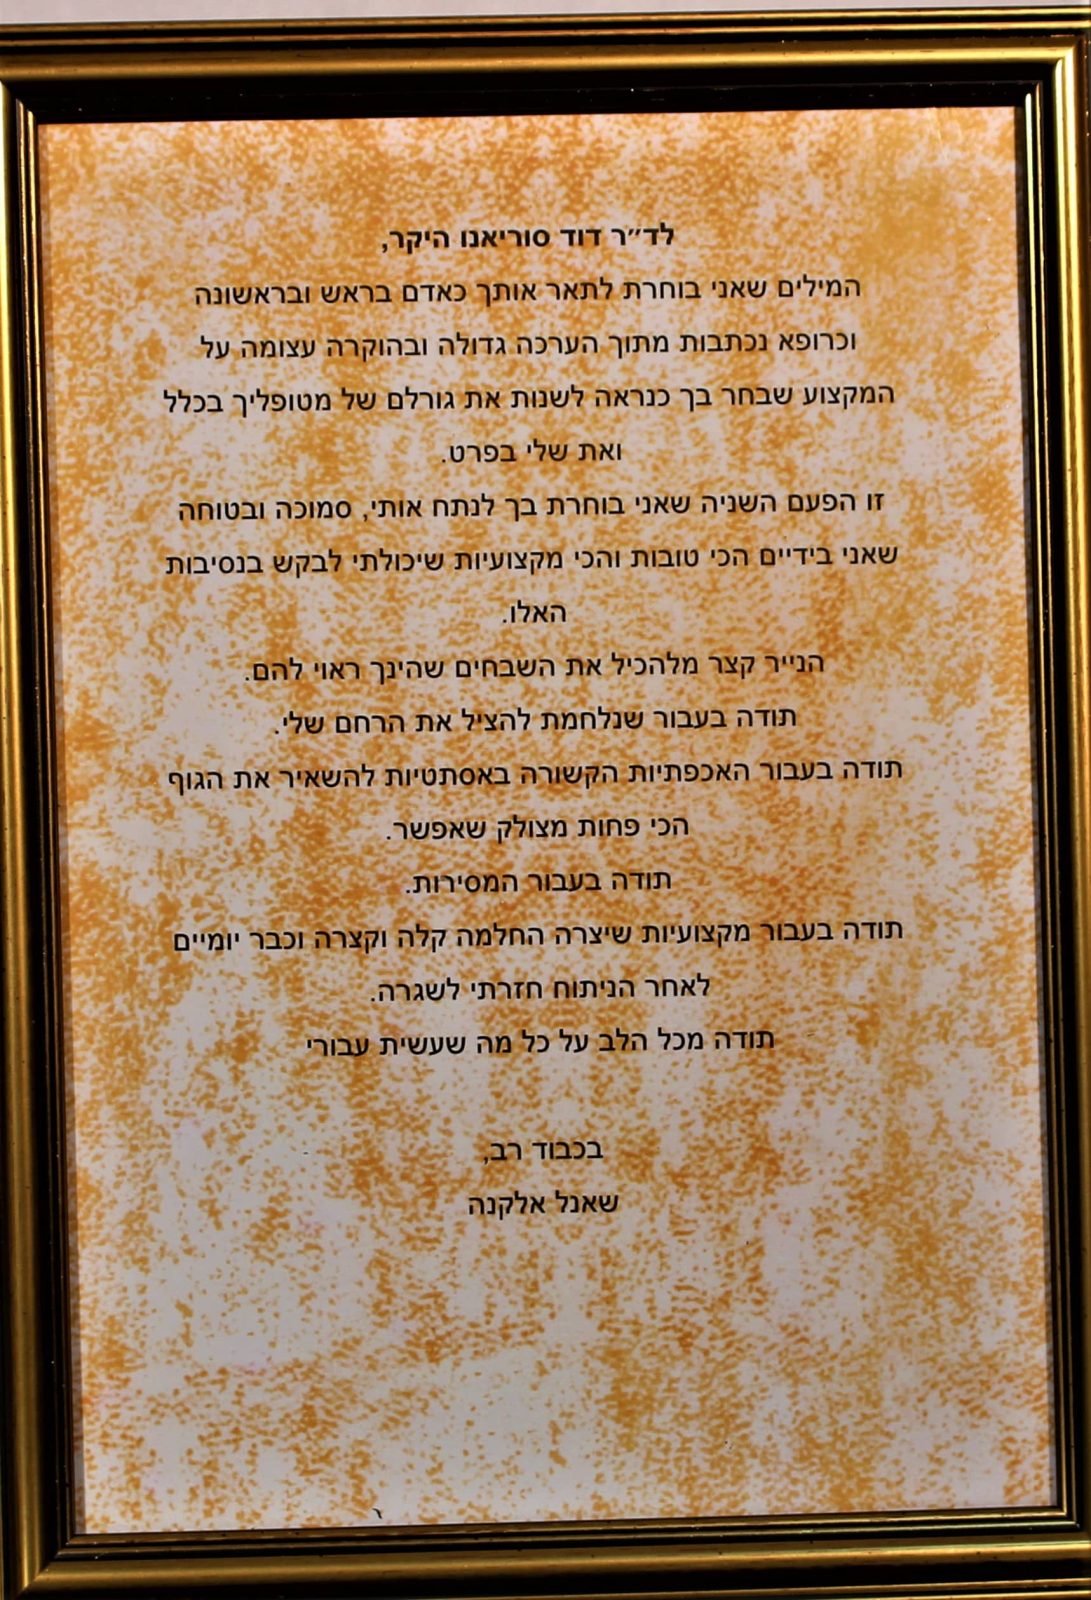 לד״ר דוד סוריאנו היקר,
המילים שאני בוחרת לתאר אותך כאדם בראש ובראשונה
וכרופא נכתבות מתוך הערכה גדולה ובהוקרה עצומה על
המקצוע שבחר בך כנראה לשנות את גורלם של מטופליך בכלל
ואת שלי בפרט.
זו הפעם השניה שאני בוחרת בך לנתח אותי, סמוכה ובטוחה
שאני בידיים הכי טובות והכי מקצועיות שיכולתי לבקש בנסיבות
האלו.
הנייר קצר מלהכיל את השבחים שהינך ראוי להם.
תודה בעבור שנלחמת להציל את הרחם שלי.
תודה בעבור האכפתיות הקשורה באסתטיות להשאיר את הגוף
הכי פחות מצולק שאפשר.
תודה בעבור המסירות.
תודה בעבור מקצועיות שיצרה החלמה קלה וקצרה וכבר יומיים
לאחר הניתוח חזרתי לשגרה.
תודה מכל הלב על כל מה שעשית עבורי
בכבוד רב,
שאנל אלקנה